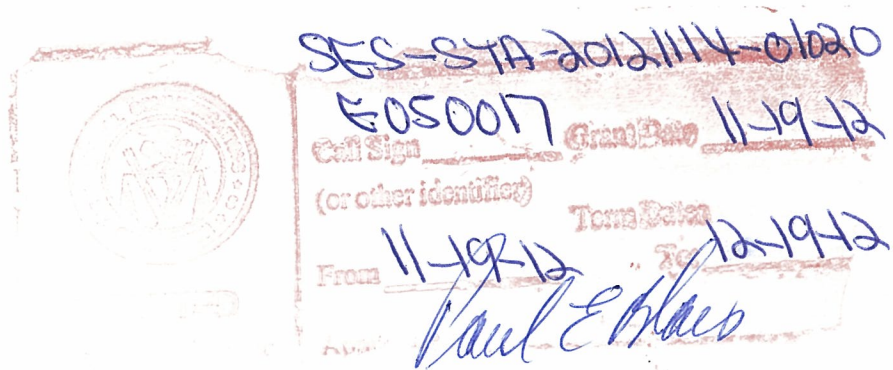 SES-STA-20121114-01020
E050017
Call Sign Grant Date 11-19-12
(or other identifier)
Term Dates
From 11-19-12 To: 12-19-12
Paul E Blais